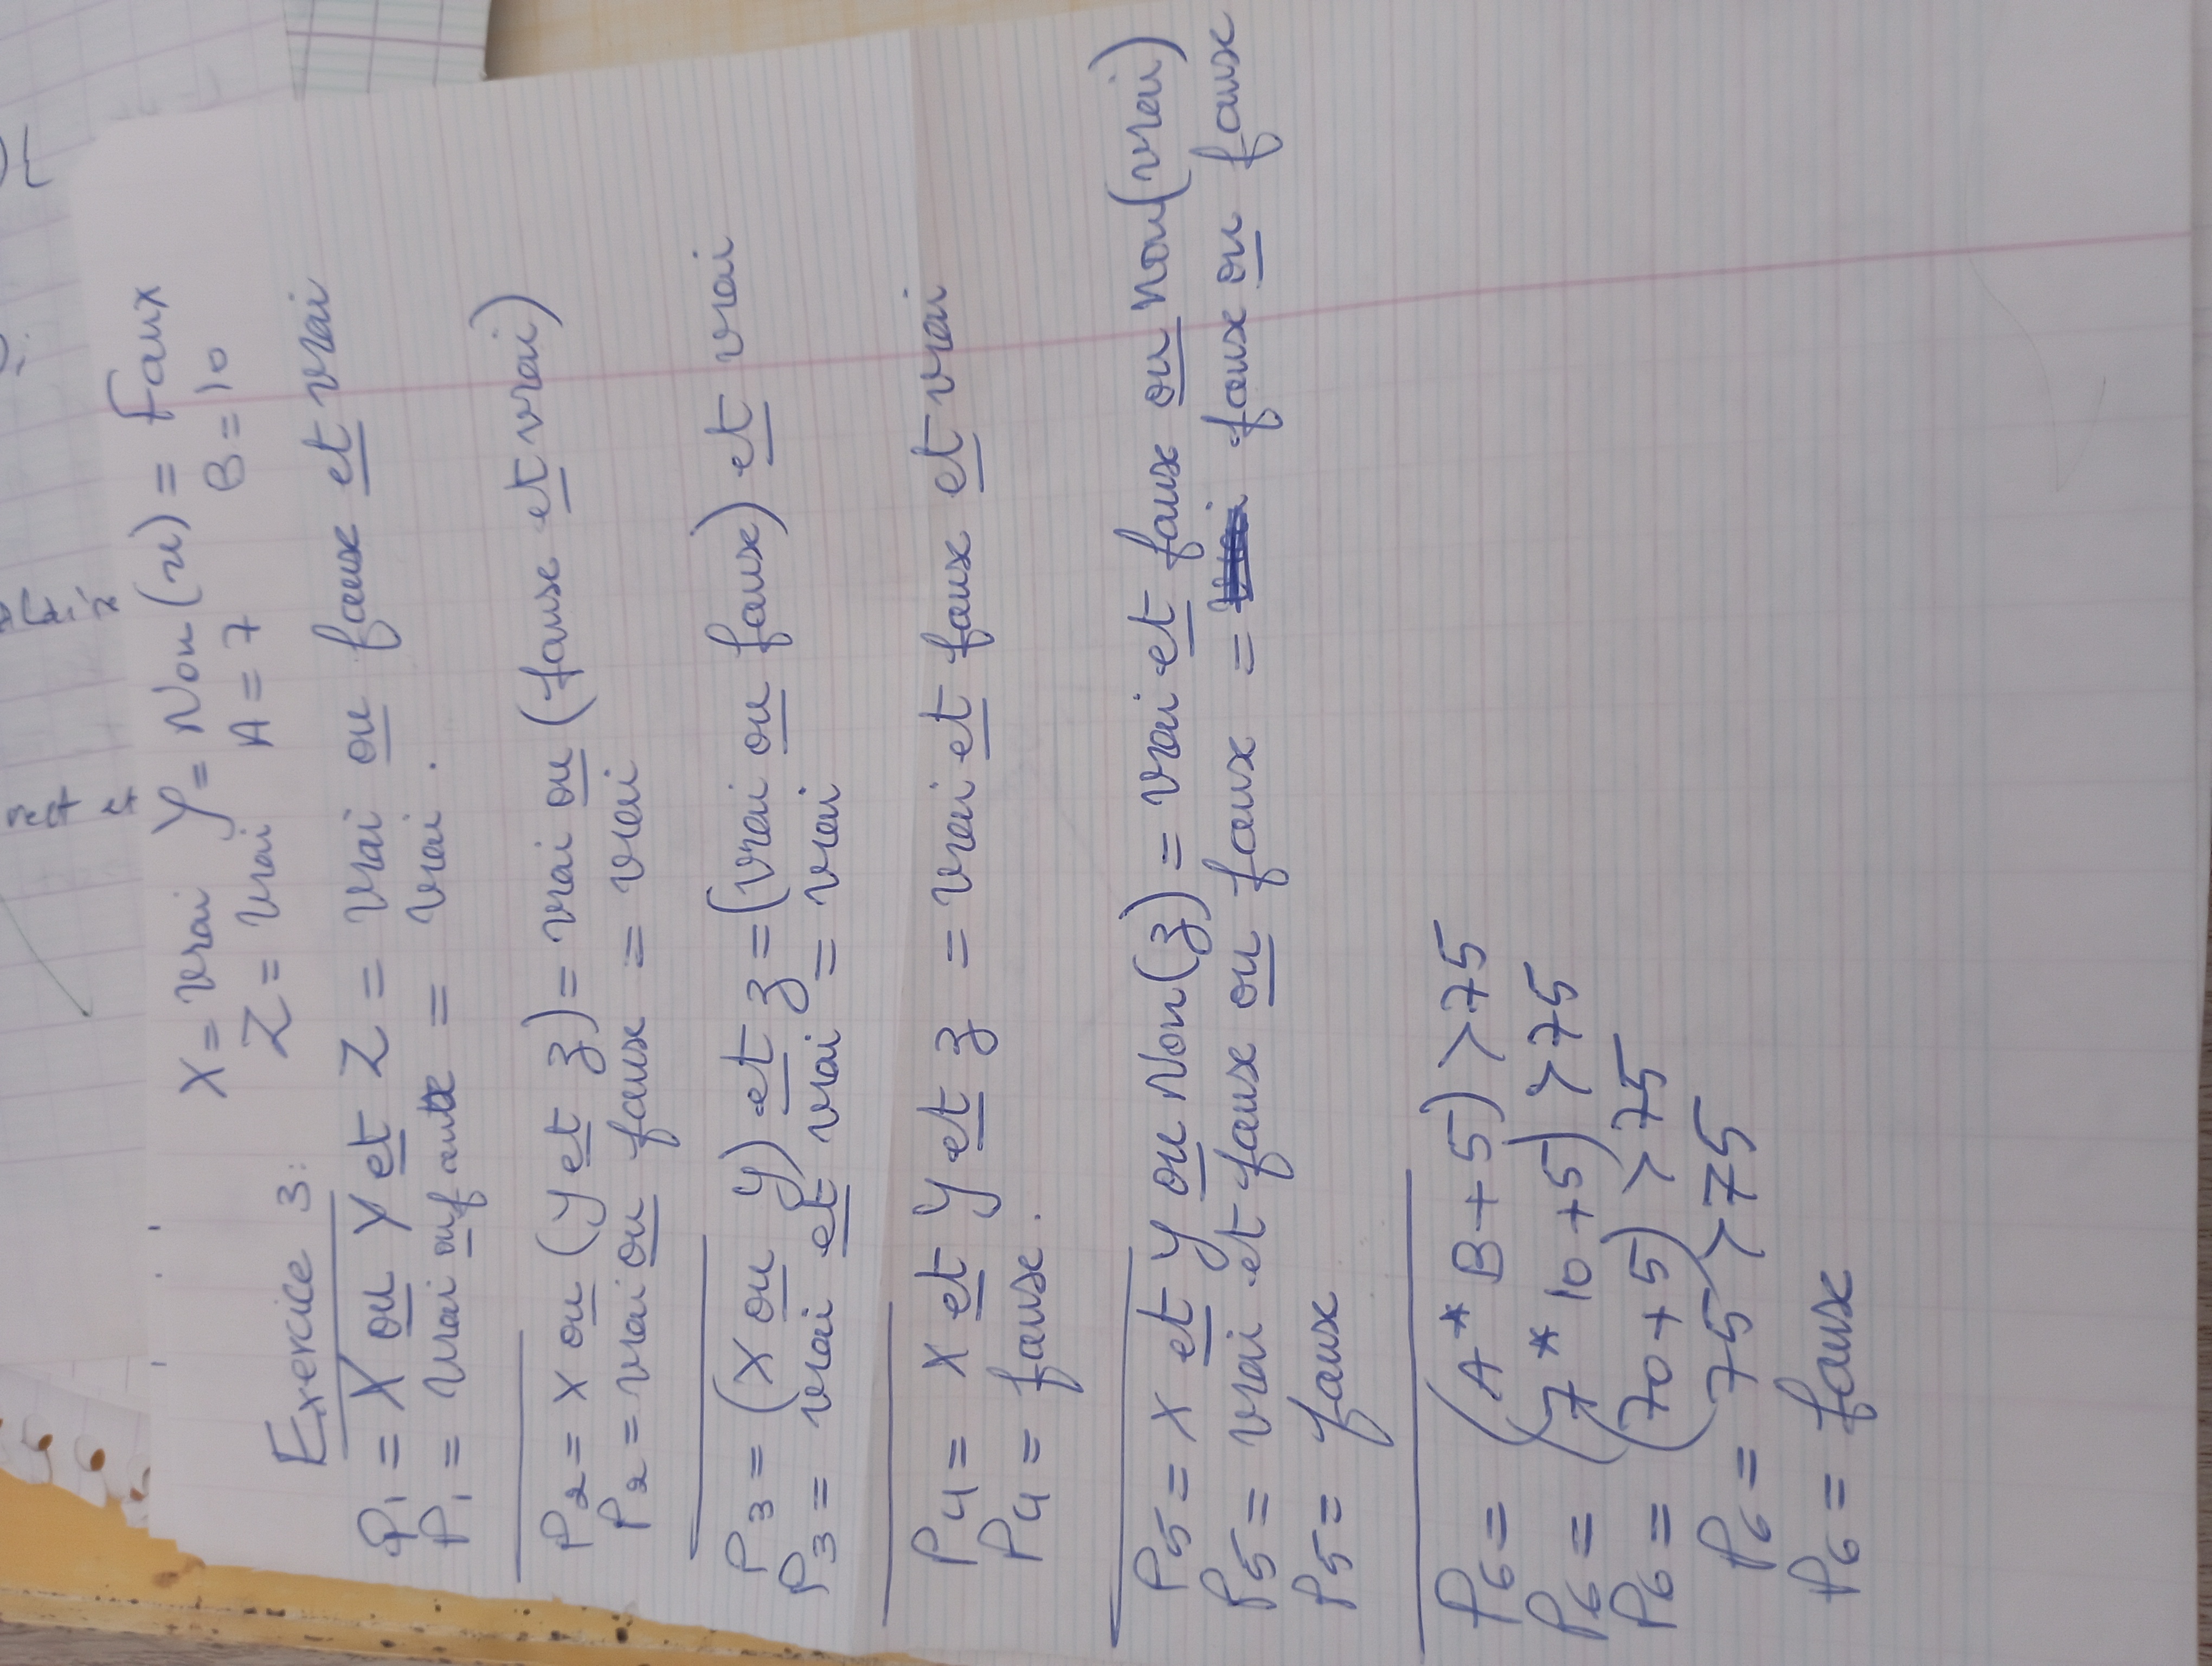 rest et
X = vrai Y = Non (x) = Faux
Z = vrai A = 7 B = 10
Exercice 3:
P1 = X ou Y et Z = vrai ou faux et vrai
P1 = vrai ou faux = vrai .
P2 = X ou (y et z) = vrai ou (faux et vrai)
P2 = vrai ou faux = vrai
P3 = (X ou y) et z = (vrai ou faux) et vrai
P3 = vrai et vrai = vrai
P4 = X et Y et z = vrai et faux et vrai
P4 = faux .
P5 = X et y ou Non(z) = vrai et faux ou non(vrai)
P5 = vrai et faux ou faux = vrai faux ou faux
P5 = faux
P6 = (A * B + 5) > 75
P6 = (7 * 10 + 5) > 75
P6 = (70 + 5) > 75
P6 = 75 > 75
P6 = faux